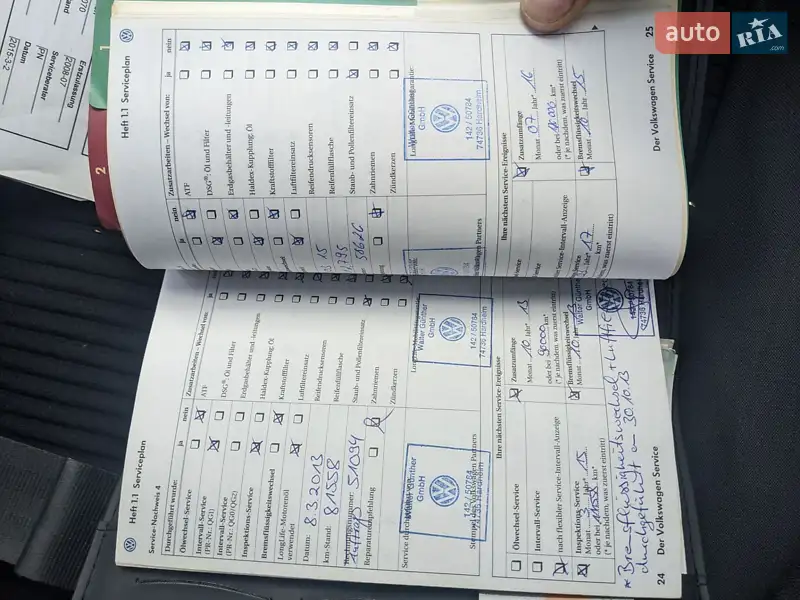 auto
RIA
.com
Erstzulassung
2008-07
Serviceberater
PN
Datum
2015-3-2
1
2
Heft 1.1 Serviceplan
Zusatzarbeiten – Wechsel von:
ja
nein
ATF
DSG®: Öl und Filter
Erdgasbehälter und -leitungen
Haldex-Kupplung: Öl
Kraftstofffilter
Luftfiltereinsatz
Reifendrucksensoren
Reifenfüllflasche
Staub- und Pollenfiltereinsatz
Zahnriemen
Zündkerzen
Walter Günther
GmbH
142 / 50784
74736 Hardheim
Ihre nächsten Service-Ereignisse
Zusatzumfänge
Monat 07 Jahr* 16
oder bei 90000 km*
(* je nachdem, was zuerst eintritt)
Bremsflüssigkeitswechsel
Monat 10 Jahr 15
Der Volkswagen Service
25
ja
nein
15
51626
Partners
Service-Intervall-Anzeige
Jahr* 17
km*
was zuerst eintritt)
Heft 1.1 Serviceplan
Service-Nachweis 4
Durchgeführt wurde:
ja
nein
Ölwechsel-Service
Intervall-Service
(PR-Nr.: QG1)
Intervall-Service
(PR-Nr.: QG0/QG2)
Inspektions-Service
Bremsflüssigkeitswechsel
LongLife-Motorenöl
verwendet
Datum: 8.3.2013
km-Stand: 81558
51094
Service durch
Walter Günther
GmbH
142 / 50784
74736 Hardheim
Stempel des Volkswagen Partners
Zusatzarbeiten – Wechsel von:
ja
nein
ATF
DSG®: Öl und Filter
Erdgasbehälter und -leitungen
Haldex-Kupplung: Öl
Kraftstofffilter
Luftfiltereinsatz
Reifendrucksensoren
Reifenfüllflasche
Staub- und Pollenfiltereinsatz
Zahnriemen
Zündkerzen
Walter Günther
GmbH
142 / 50784
74736 Hardheim
Ihre nächsten Service-Ereignisse
Ölwechsel-Service
Intervall-Service
nach flexibler Service-Intervall-Anzeige
Inspektions-Service
Monat Jahr* 15
oder bei km*
(* je nachdem, was zuerst eintritt)
Zusatzumfänge
Monat 10 Jahr* 13
oder bei 90000 km*
(* je nachdem, was zuerst eintritt)
Bremsflüssigkeitswechsel
Monat 10 Jahr 13
Walter Günther
GmbH
* Bremsflüssigkeitswechsel + Luftfilter
durchgeführt am 30.10.13
24
Der Volkswagen Service